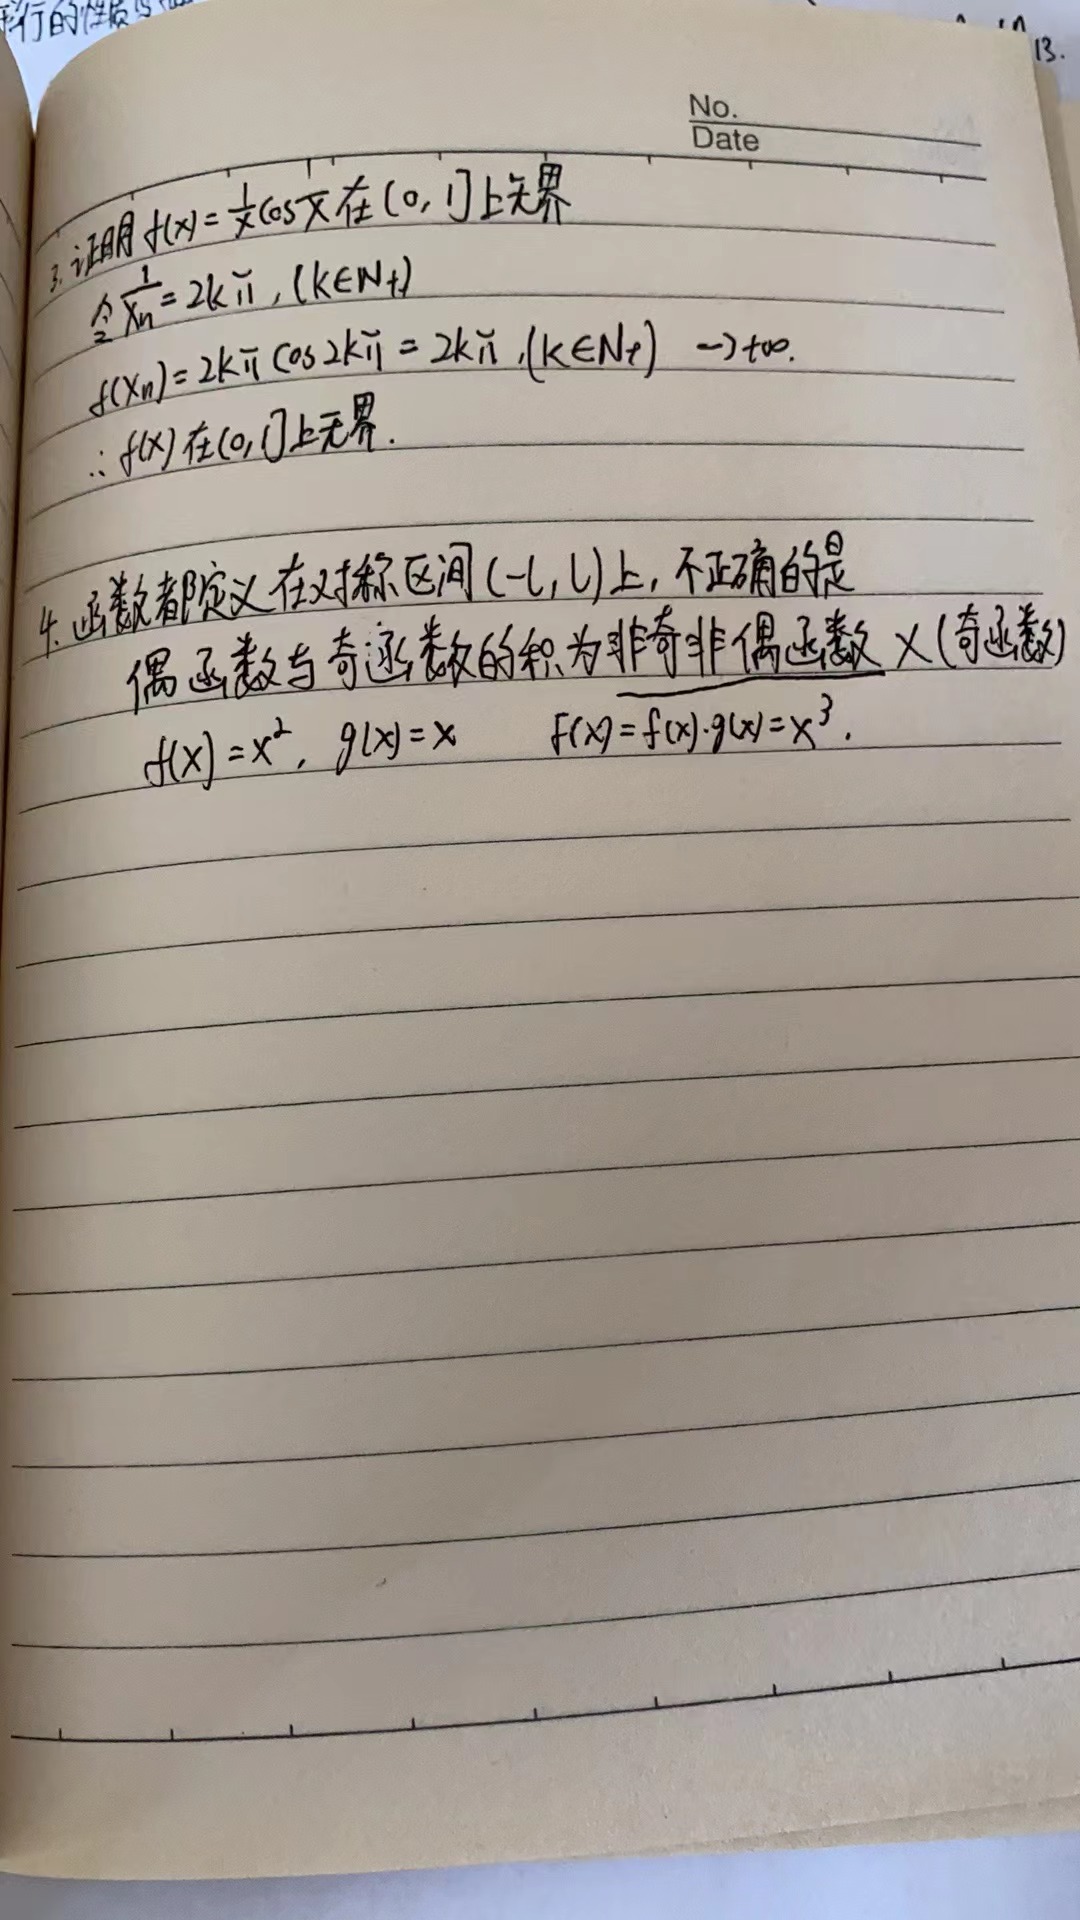 No.
Date
13.
3. 证明 f(x) = 1/x cos 1/x 在 (0, 1] 上无界
令 1/xn = 2kπ, (k∈N+)
f(xn) = 2kπ cos 2kπ = 2kπ, (k∈N+) → +∞.
∴ f(x) 在 (0, 1] 上无界.
4. 函数都定义在对称区间 (-l, l) 上, 不正确的是
偶函数与奇函数的积为非奇非偶函数 × (奇函数)
f(x) = x², g(x) = x F(x) = f(x)·g(x) = x³.